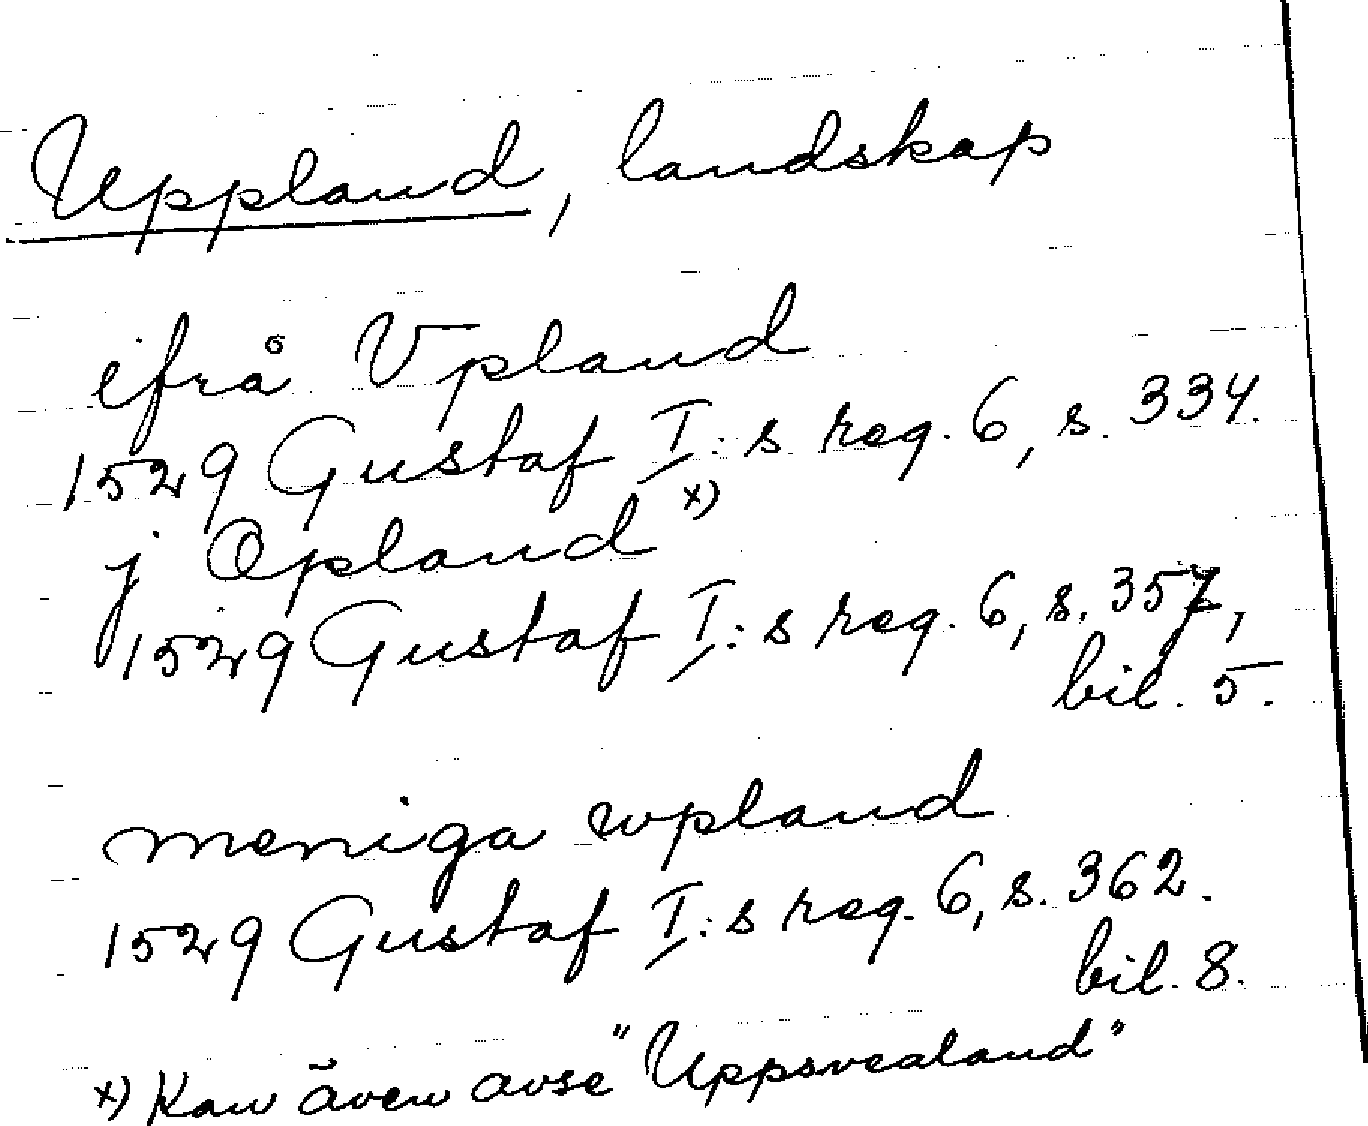 Uppland, landskap
ifrå Vpland
1529 Gustaf I:s reg. 6, s. 334.
j Opland x)
1529 Gustaf I:s reg. 6, s. 357,
bil. 5.
meniga wpland
1529 Gustaf I:s reg. 6, s. 362.
bil. 8.
x) Kan även avse "Uppsvealand"